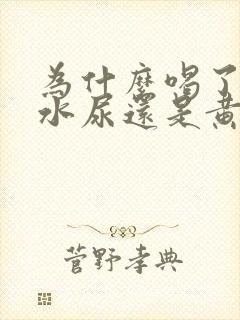 为什麼喝了
水尿還是黃
菅野孝典